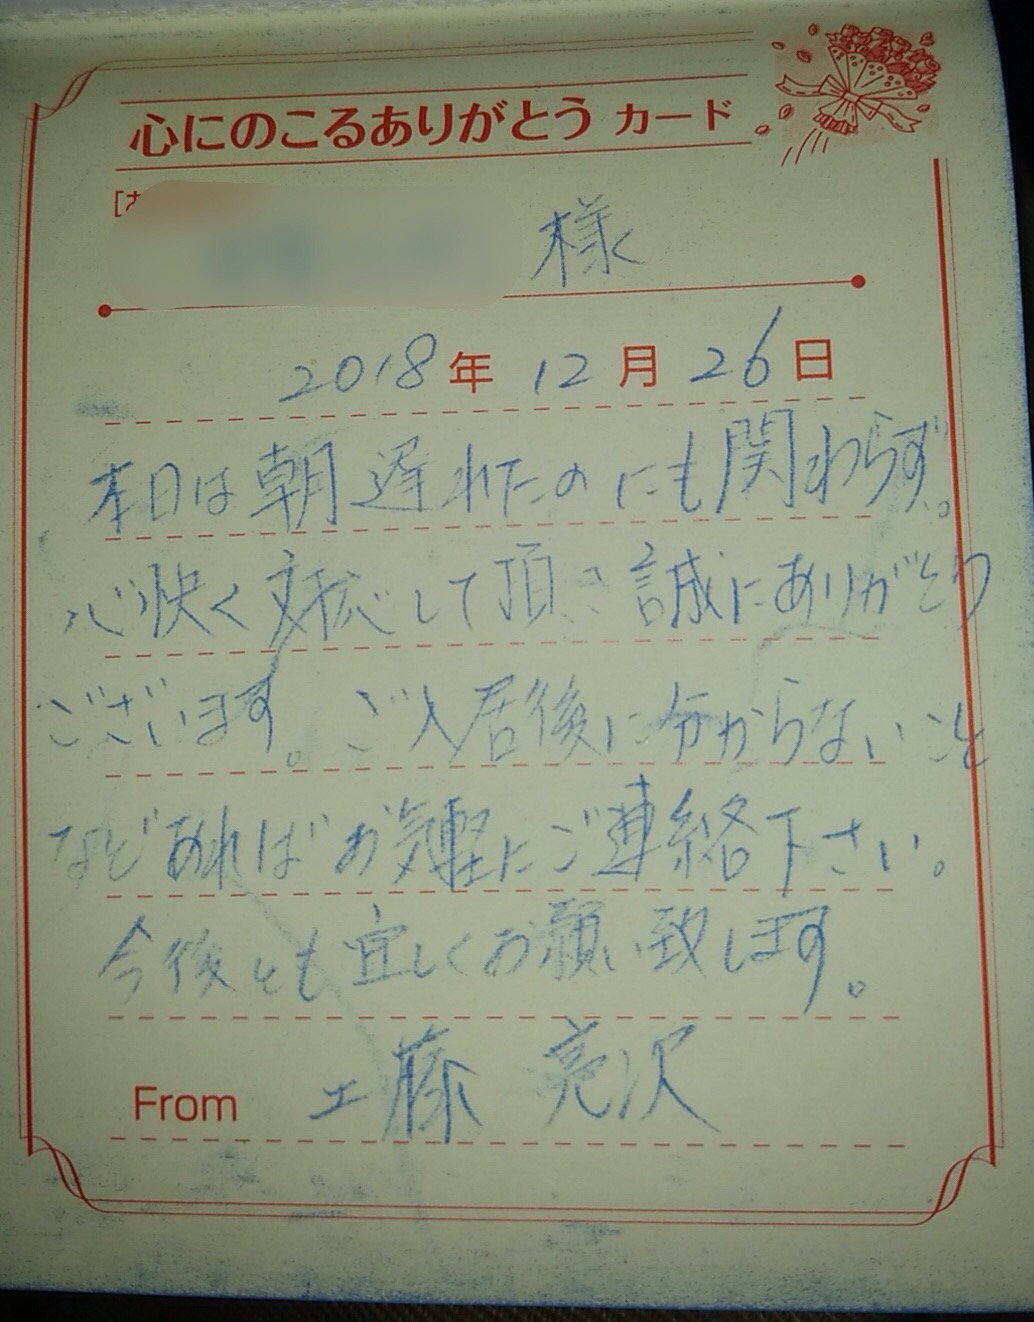 心にのこるありがとう カード
様
2018年 12月 26日
本日は朝遅れたのにも関わらず。
心快く対応して頂き誠にありがとう
ございます。ご入居後に分からないこと
などあればお気軽にご連絡下さい。
今後とも宜しくお願い致します。
From 工藤 亮沢